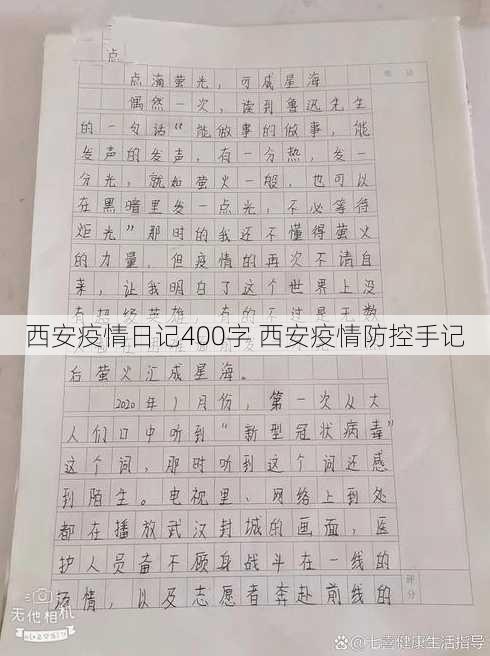 点
点滴萤光，可成星海
偶然一次，读到鲁迅先生
的一句话“能做事的做事，能
发声的发声，有一分热，发一
分光，就如萤火一般，也可以
在黑暗里发一点光，不必等待
炬光”那时的我还不懂得萤火
的力量，但疫情的再次不请自
来，让我明白了这个世界上没
有超级英雄，有的不过是无数
西安疫情日记400字 西安疫情防控手记
后萤火汇成星海。
2020年1月份，第一次从大
人们口中听到“新型冠状病毒”
这个词，那时听到这个词还感
到陌生。电视里、网络上到处
都在播放武汉封城的画面，医
护人员奋不顾身战斗在一线的
情，以及志愿者奔赴前线的
评分
无他相机
头条 @七喜健康生活指导